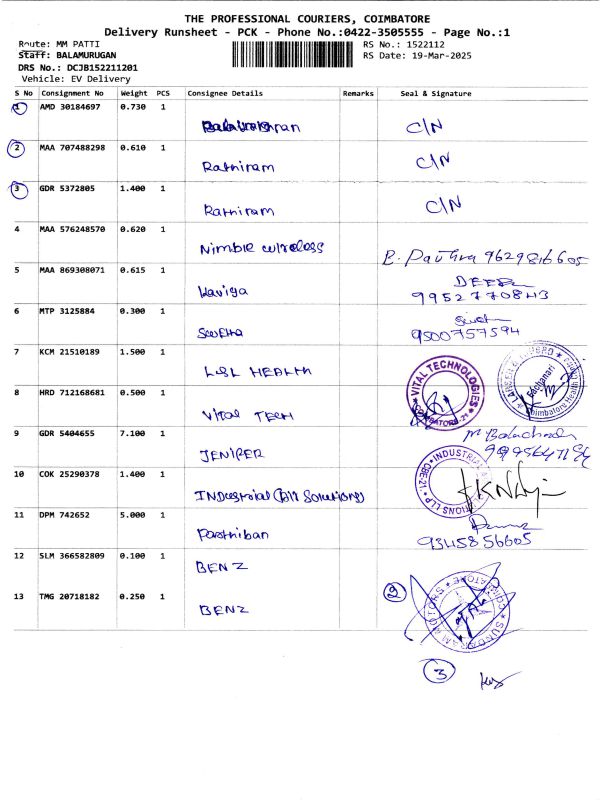 THE PROFESSIONAL COURIERS, COIMBATORE
Delivery Runsheet - PCK - Phone No.:0422-3505555 - Page No.:1
Route: MM PATTI
RS No.: 1522112
Staff: BALAMURUGAN
RS Date: 19-Mar-2025
DRS No.: DCJB152211201
Vehicle: EV Delivery
S No Consignment No Weight PCS Consignee Details Remarks Seal & Signature
1 AMD 30184697 0.730 1 C/N
2 MAA 707488298 0.610 1 Rathiram C/N
3 GDR 5372805 1.400 1 Rathiram C/N
4 MAA 576248570 0.620 1 Nimble wireless 9629816605
5 MAA 869308071 0.615 1 Kaviya 9952770843
6 MTP 3125884 0.300 1 Swetha 9500757594
7 KCM 21510189 1.500 1 L&L HEALTH
8 HRD 712168681 0.500 1 VITAL TECH VITAL TECHNOLOGIES
9 GDR 5404655 7.100 1 JENIFER
10 COK 25290378 1.400 1 INDUSTRIAL (Bin Solutions)
11 DPM 742652 5.000 1 Parthiban 9345856605
12 SLM 366582809 0.100 1 BENZ
13 TMG 20718182 0.250 1 BENZ 2
3